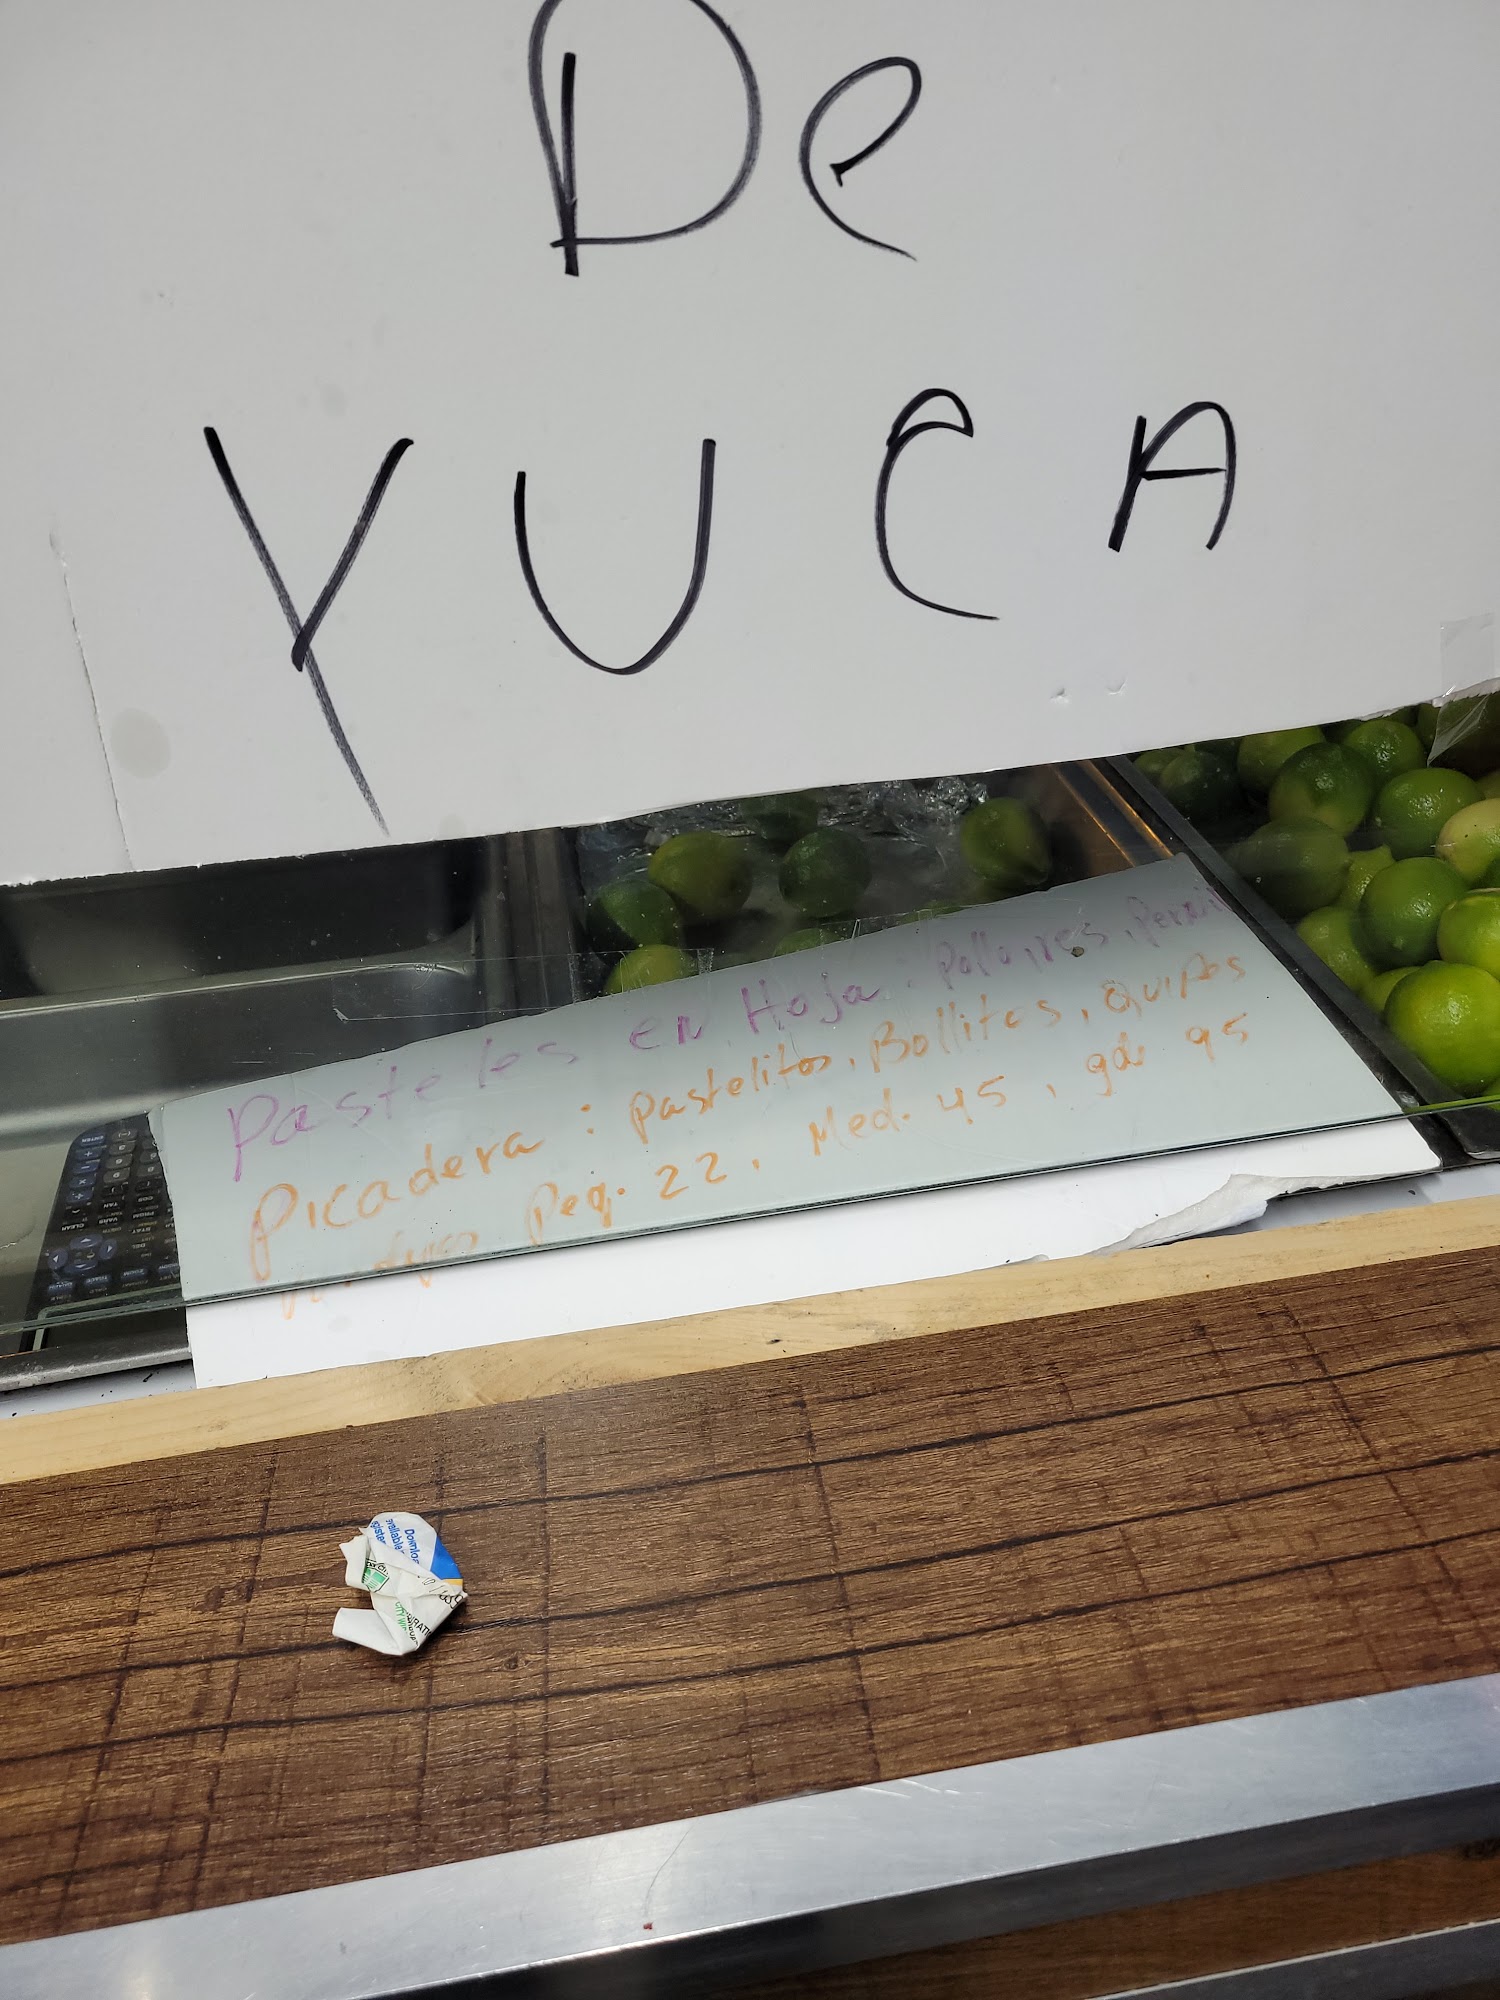 De
YUCA
Pasteles en Hoja: Pollo, res, Pernil
Picadera: pastelitos, Bollitos, Quipes
Peq. 22, Med. 45, gde 95
Downloa
available
CITY WI